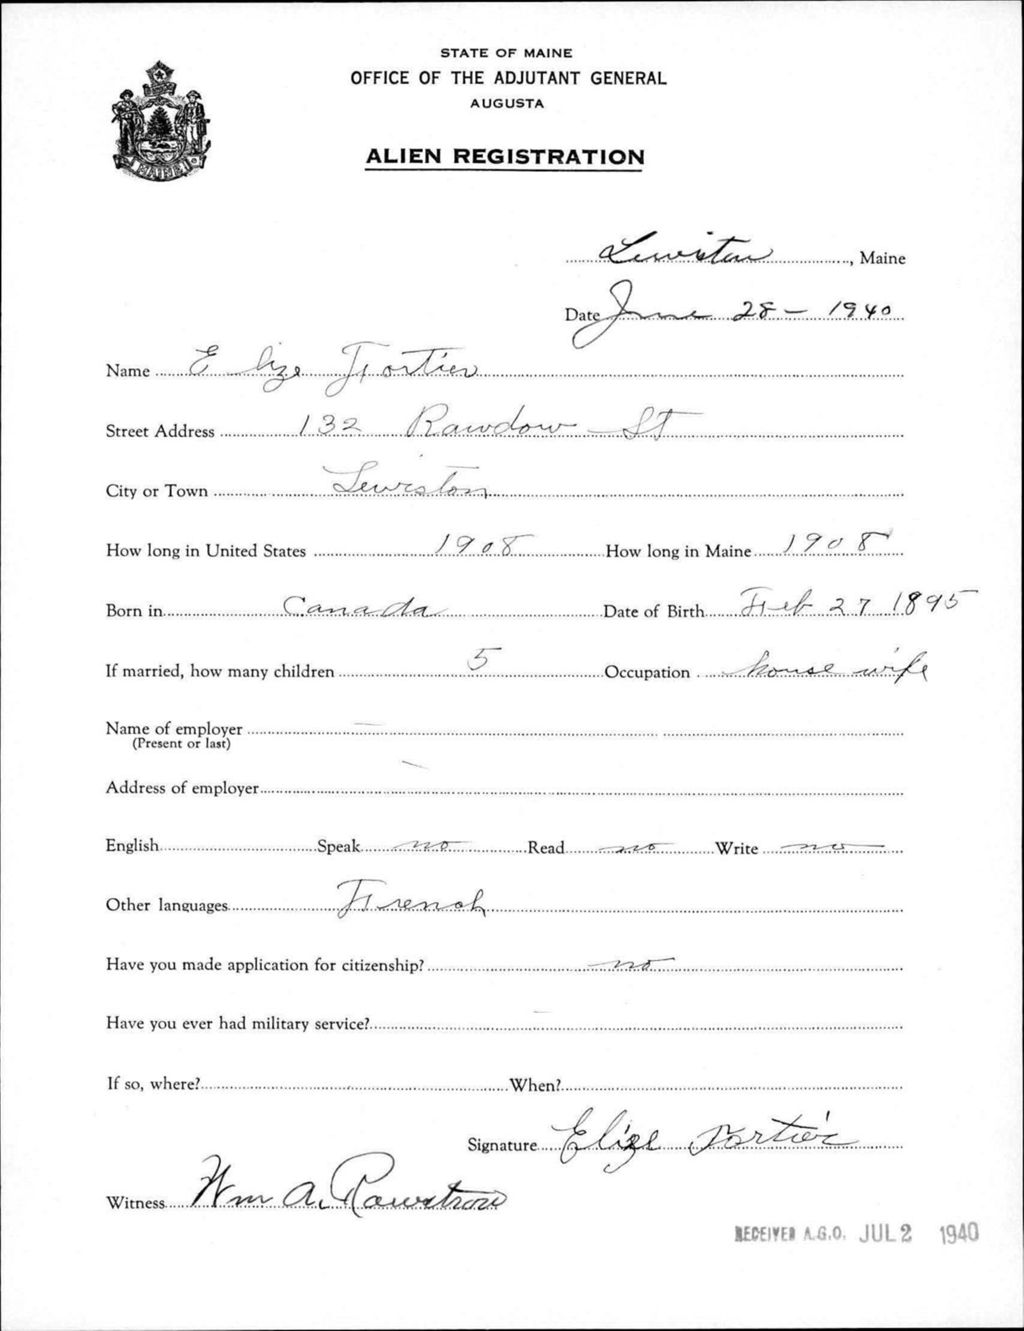 STATE OF MAINE
OFFICE OF THE ADJUTANT GENERAL
AUGUSTA
ALIEN REGISTRATION
Lewiston, Maine
Date June 28 - 1940
Name Elize Fortier
Street Address 132 Rawdow St
City or Town Lewiston
How long in United States 1908 How long in Maine 1908
Born in Canada Date of Birth Feb 27 1895
If married, how many children 5 Occupation house wife
Name of employer —
(Present or last)
Address of employer —
English Speak no Read no Write no
Other languages French
Have you made application for citizenship? no
Have you ever had military service? —
If so, where? When?
Signature Elize Fortier
Witness Wm A.
RECEIVED A.G.O. JUL 2 1940
MAINE